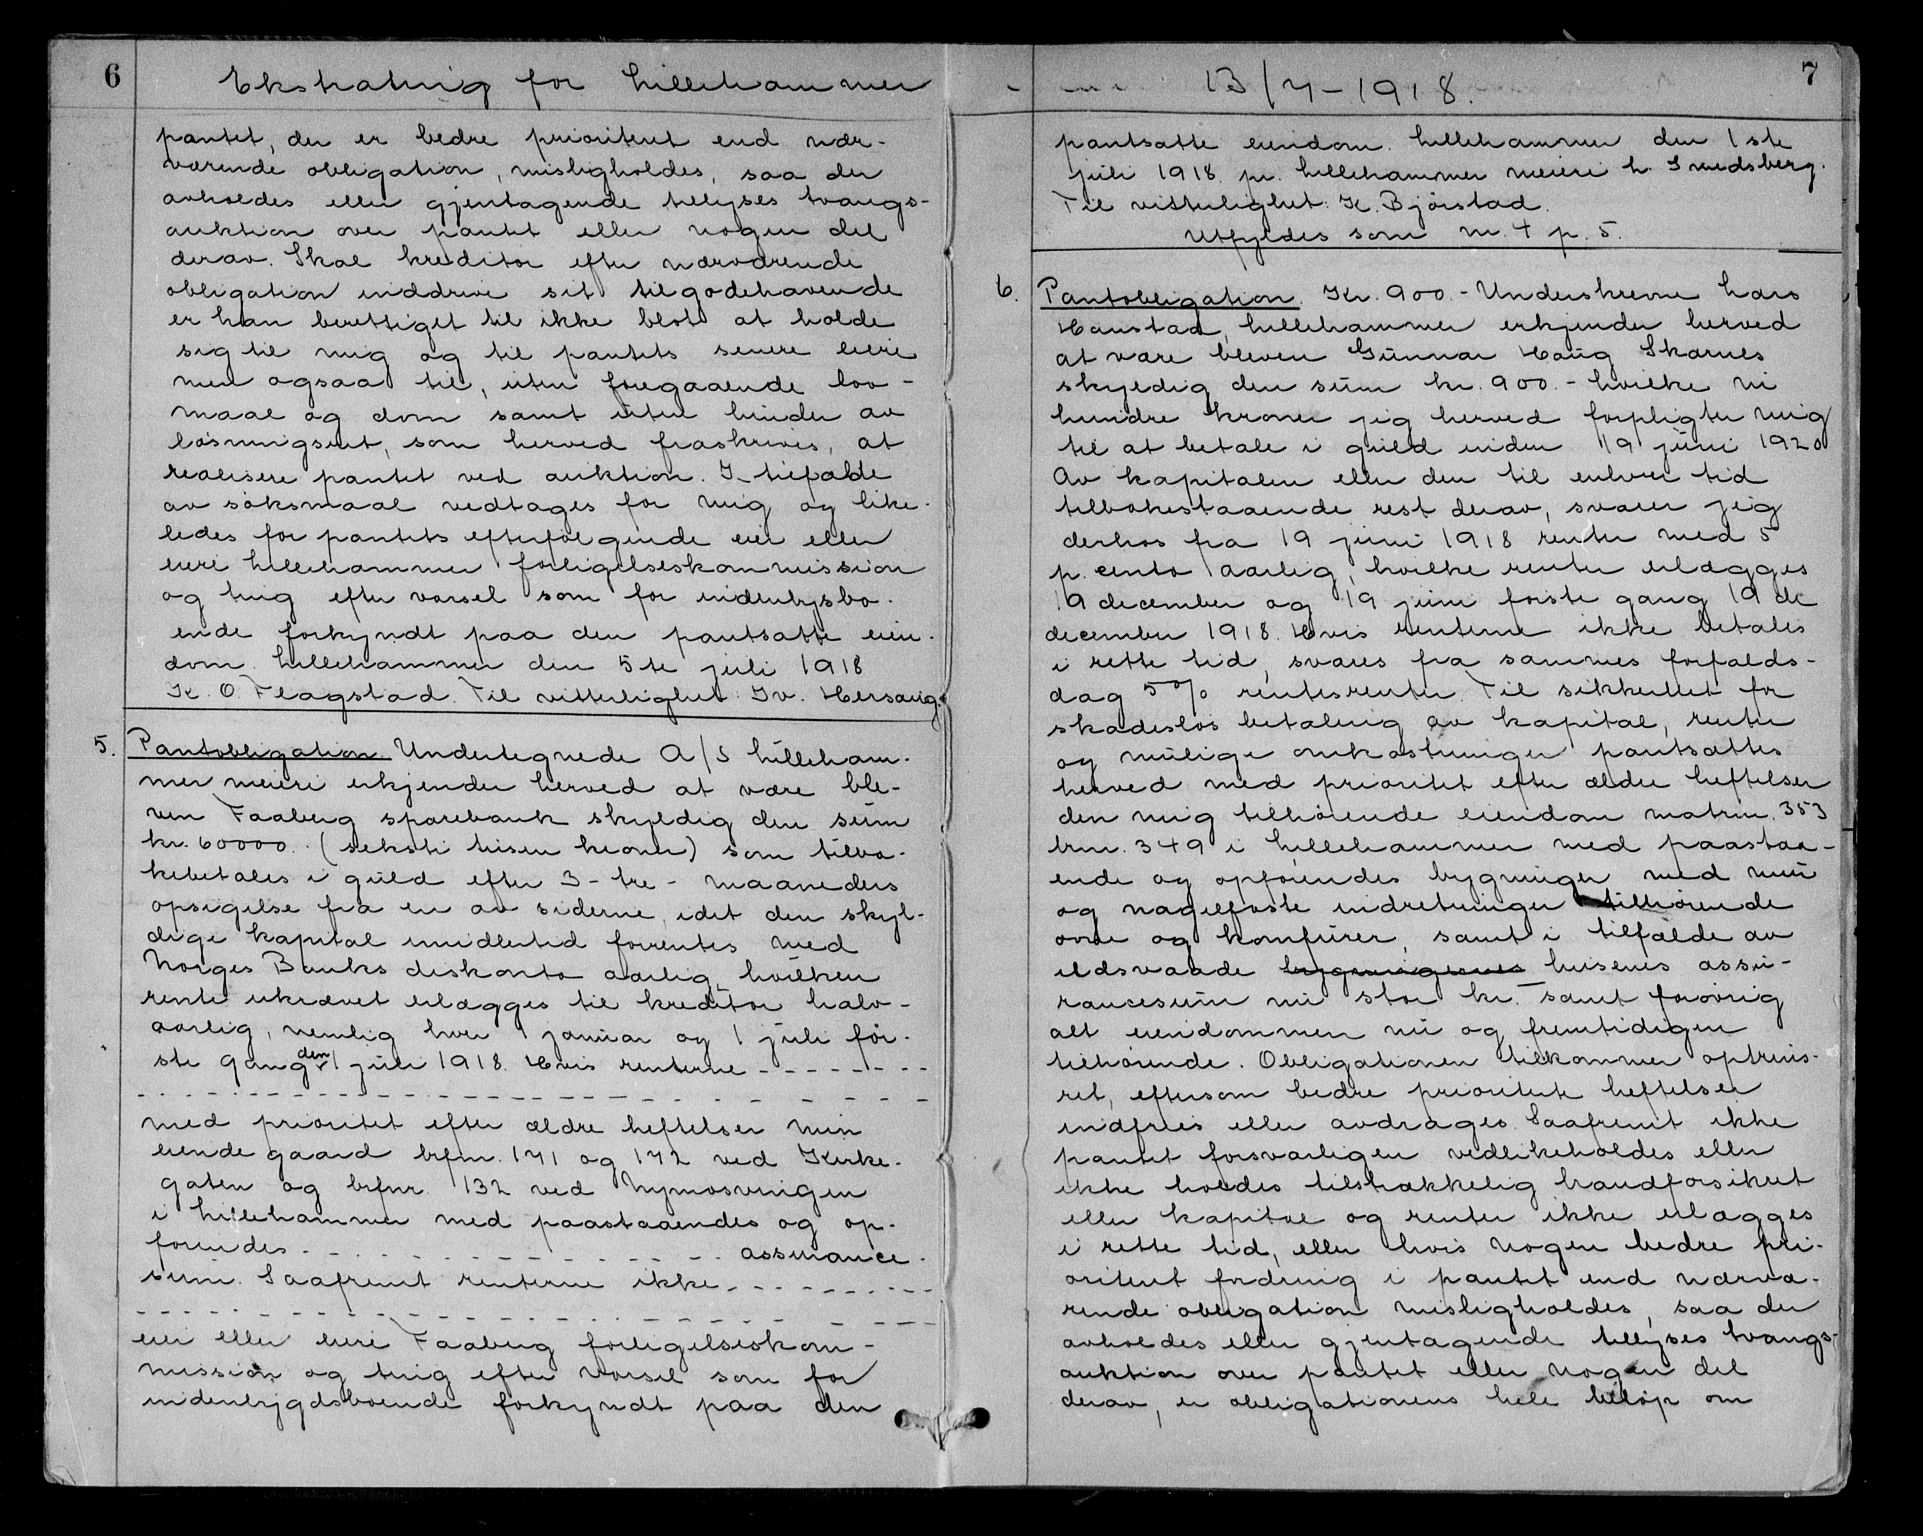 6
Ekstrating for Lillehammer
pantet, der er bedre prioritert end nær-
værende obligation, misligholdes, saa der
avholdes eller gjentagende tillyses tvangs-
auktion over pantet eller nogen del
derav. Skal kreditor efter nærværende
obligation inddrive sit tilgodehavende
er han berettiget til ikke blot at holde
sig til mig og til pantets senere eiere
men ogsaa til, uten foregaaende lov-
maal og dom samt uten hinder av
løsningsret, som herved fraskrives, at
realisere pantet ved auktion. I tilfælde
av søksmaal vedtages for mig og like-
ledes for pantets efterfølgende eier eller
eiere Lillehammer forligelseskommission
og ting efter varsel som for indenbysbo-
ende forkyndt paa den pantsatte eien-
dom. Lillehammer den 5te juli 1918
K. O. Flagstad. Til vitterlighet: Iv. Hersaug.
5. Pantobligation Undertegnede A/S Lilleham-
mer meieri erkjender herved at være ble-
ven Faaberg sparebank skyldig den sum
kr. 60000.- (seksti tusen kroner) som tilba-
kebetales i guld efter 3-tre- maaneders
opsigelse fra en av siderne, idet den skyl-
dige kapital imidlertid forrentes med
Norges Banks diskonto aarlig, hvilken
rente ukrævet erlægges til kreditor halv-
aarlig, nemlig hver 1 januar og 1 juli før-
ste gang den 1 juli 1918. Hvis renterne - - - - - - - -
- - - - - - - - - - - - - - - - - - - - - -
med prioritet efter ældre heftelser min
eiende gaard brfnr. 171 og 172 ved Kirke-
gaten og brfnr. 132 ved Nymosvingen
i Lillehammer med paastaaendes og op-
førendes - - - - - - - - - - - - - - assurance-
sum. Saafremt renterne ikke - - - - - - - - -
- - - - - - - - - - - - - - - - - - - - - -
eier eller eiere Faaberg forligelseskom-
mission og ting efter varsel som for
indenbygdsboende forkyndt paa den
13/7-1918.
7
pantsatte eiendom. Lillehammer den 1ste
juli 1918. pr. Lillehammer meieri L. Smedsberg.
Til vitterlighet: K. Bjørstad.
Utfyldes som nr. 4 p. 5.
6. Pantobligation. Kr. 900.- Underskrevne Lars
Hanstad, Lillehammer erkjender herved
at være bleven Gunnar Haug Skarnes
skyldig den sum kr. 900.- hvilke ni
hundre kroner jeg herved forpligter mig
til at betale i guld inden 19 juni 1920
Av kapitalen eller den til enhver tid
tilbakestaaende rest derav, svarer jeg
derhos fra 19 juni 1918 renter med 5
p. cento aarlig, hvilke renter erlægges
19 december og 19 juni første gang 19 de
december 1918. Hvis renterne ikke betales
i rette tid, svares fra sammes forfalds-
dag 5% rentesrenter. Til sikkerhet for
skadesløs betaling av kapital, renter
og mulige omkostninger pantsættes
herved med prioritet efter ældre heftelser
den mig tilhørende eiendom matrnr. 353
brnr. 349 i Lillehammer med paastaa-
ende og opførendes bygninger med mur
og nagelfaste indretninger tilhørende
ovne og komfurer, samt i tilfælde av
ildsvaade bygningernes husenes assu-
rancesum nu stor kr. — samt forøvrig
alt eiendommen nu og fremtidigen
tilhørende. Obligationen tilkommer optrins-
ret, eftersom bedre prioriterte heftelser
indfries eller avdrages. Saafremt ikke
pantet forsvarligen vedlikeholdes eller
ikke holdes tilstrækkelig brandforsikret
eller kapital og renter ikke erlægges
i rette tid, eller hvis nogen bedre pri-
oritert fordring i pantet end nærvæ-
rende obligation misligholdes, saa der
avholdes eller gjentagende tillyses tvangs-
auktion over pantet eller nogen del
derav, er obligationens hele beløp om